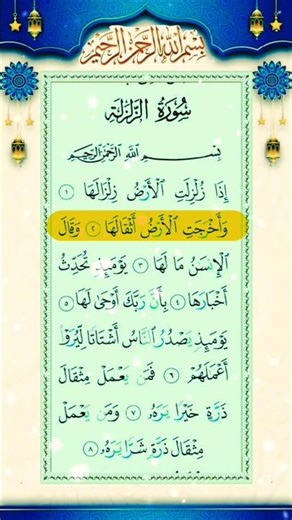 بسم الله الرحمن الرحيم
سُورَةُ الزَّلْزَلَة
بِسْمِ اللَّهِ الرَّحْمَٰنِ الرَّحِيمِ
إِذَا زُلْزِلَتِ ٱلْأَرْضُ زِلْزَالَهَا ١
وَأَخْرَجَتِ ٱلْأَرْضُ أَثْقَالَهَا ٢ وَقَالَ
ٱلْإِنسَٰنُ مَا لَهَا ٣ يَوْمَئِذٍ تُحَدِّثُ
أَخْبَارَهَا ٤ بِأَنَّ رَبَّكَ أَوْحَىٰ لَهَا ٥
يَوْمَئِذٍ يَصْدُرُ ٱلنَّاسُ أَشْتَاتًا لِّيُرَوْا۟
أَعْمَٰلَهُمْ ٦ فَمَن يَعْمَلْ مِثْقَالَ
ذَرَّةٍ خَيْرًا يَرَهُۥ ٧ وَمَن يَعْمَلْ
مِثْقَالَ ذَرَّةٍ شَرًّا يَرَهُۥ ٨